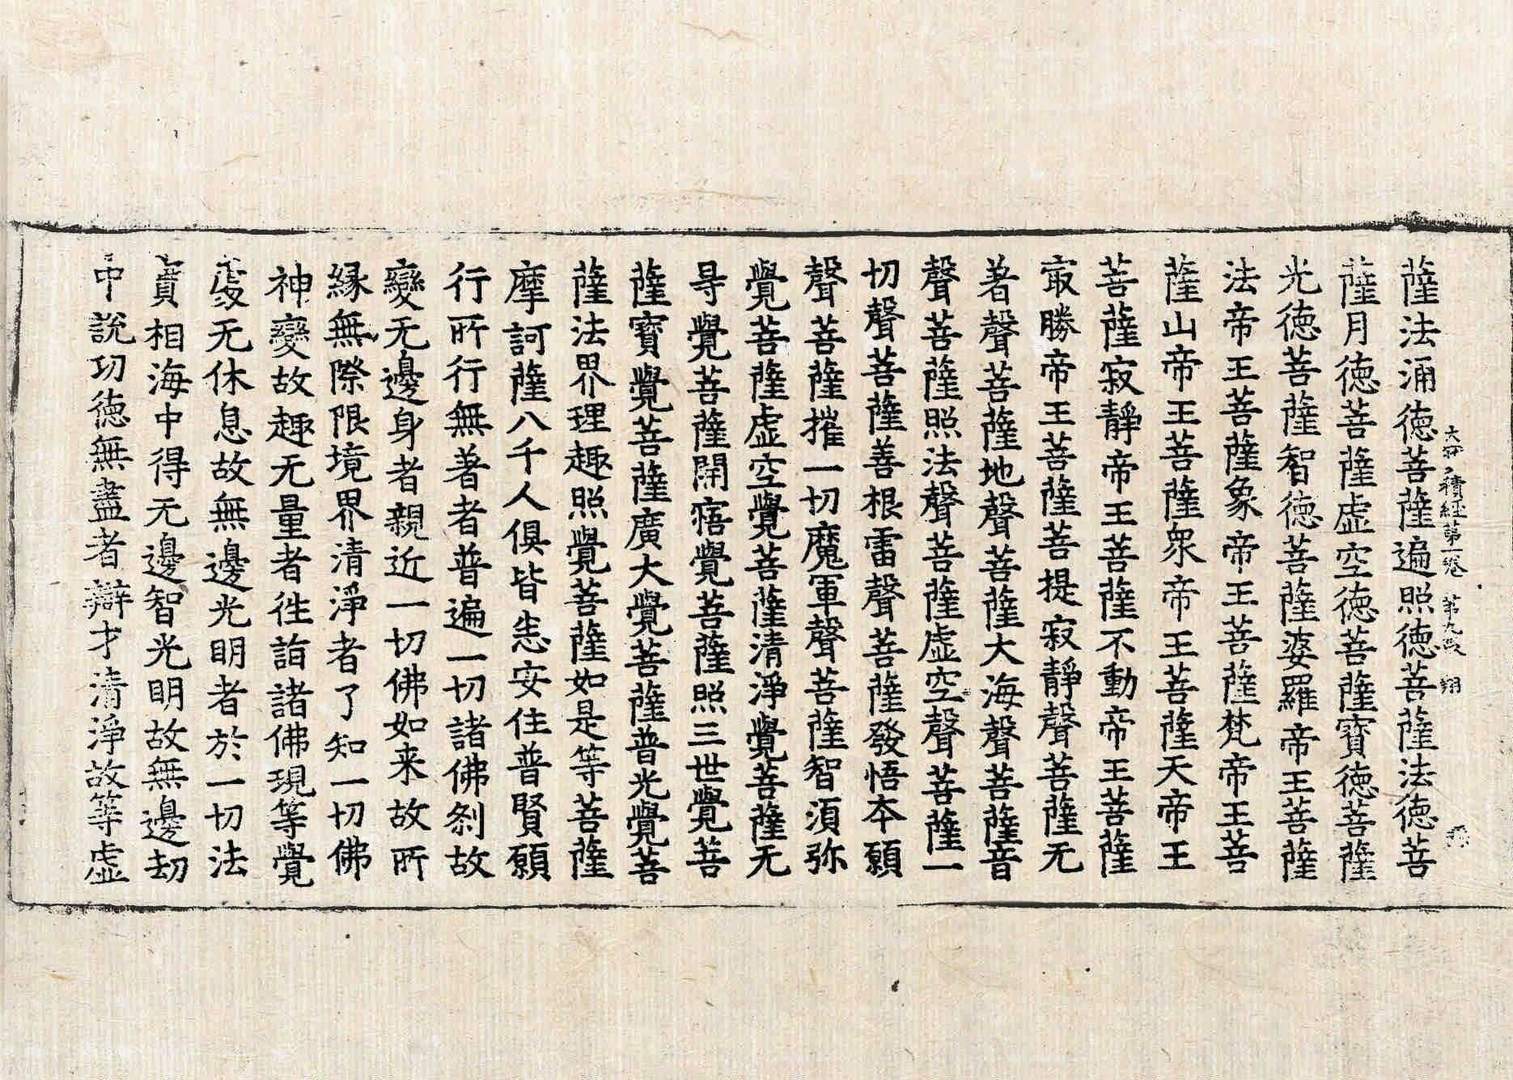 薩法涌德菩薩遍照德菩薩法德菩
大寶積經第一卷 第九張 翔
薩月德菩薩虛空德菩薩寶德菩薩
光德菩薩智德菩薩娑羅帝王菩薩
法帝王菩薩象帝王菩薩梵帝王菩
薩山帝王菩薩衆帝王菩薩天帝王
菩薩寂靜帝王菩薩不動帝王菩薩
㝡勝帝王菩薩菩提寂靜聲菩薩无
著聲菩薩地聲菩薩大海聲菩薩音
聲菩薩照法聲菩薩虛空聲菩薩一
切聲菩薩善根雷聲菩薩發悟本願
聲菩薩摧一切魔軍聲菩薩智湏弥
覺菩薩虛空覺菩薩清淨覺菩薩无
㝵覺菩薩開寤覺菩薩照三世覺菩
薩寶覺菩薩廣大覺菩薩普光覺菩
薩法界理趣照覺菩薩如是等菩薩
摩訶薩八千人俱皆悉安住普賢願
行所行無著者普遍一切諸佛刹故
變无邊身者親近一切佛如来故所
緣無際限境界清淨者了知一切佛
神變故趣无量者徃詣諸佛現等覺
處无休息故無邊光明者於一切法
實相海中得无邊智光明故無邊劫
中說功德無盡者辯才清淨故等虛